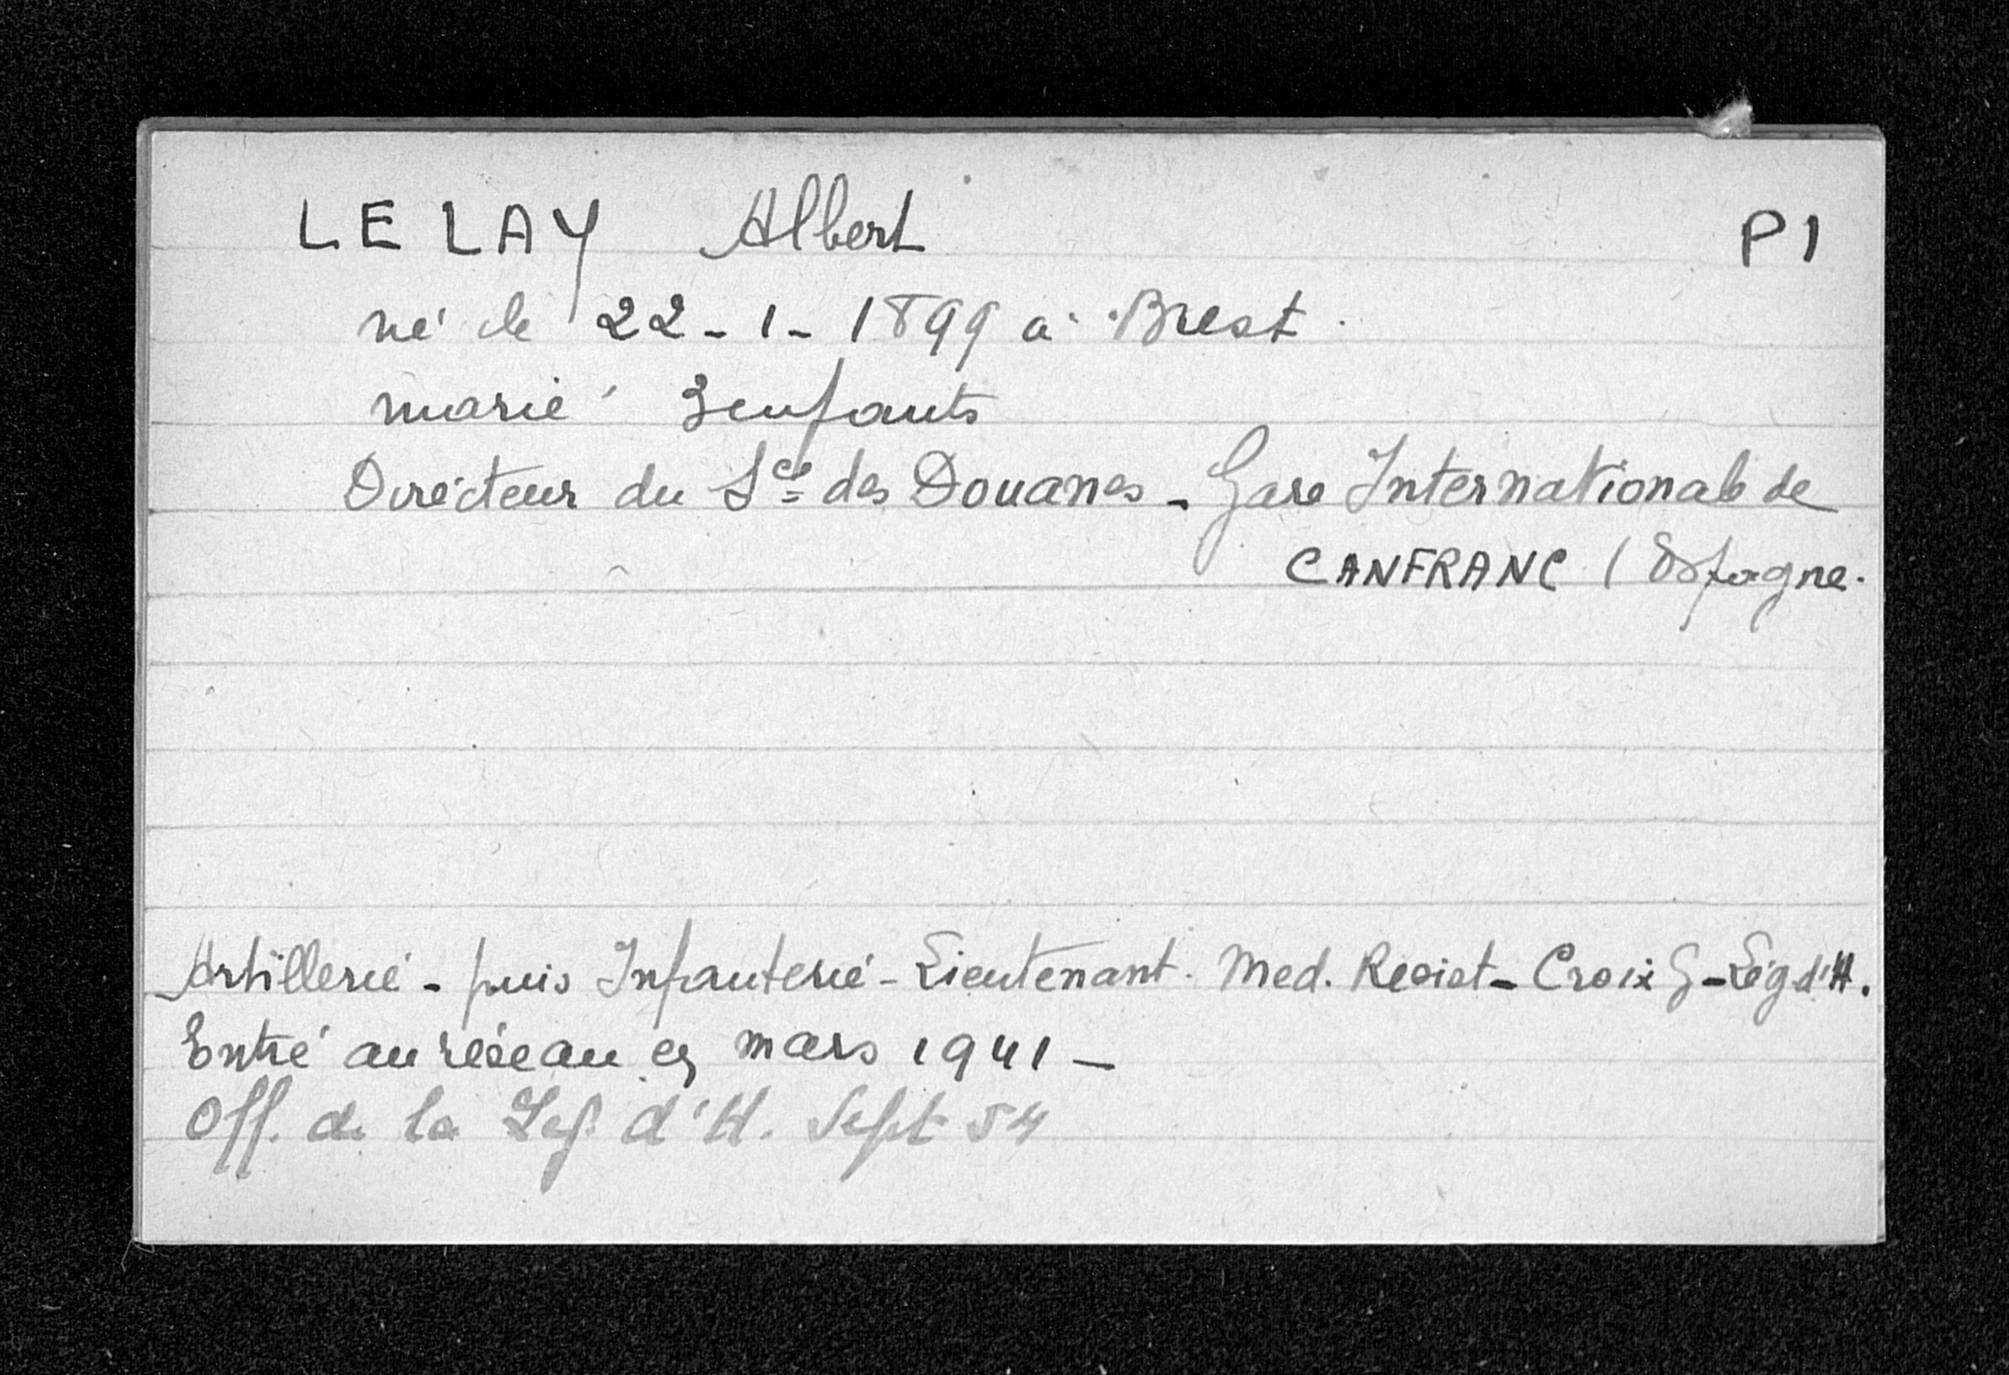 LE LAY Albert P1
né le 22-1-1899 à Brest.
marié 3 enfants
Directeur du Sce des Douanes - Gare Internationale de
CANFRANC (Espagne.
Artillerie - puis Infanterie - Lieutenant. Med. Resist - Croix G - Lég d'H.
Entré au réseau en mars 1941 -
Off. de la Leg. d'H. Sept 54